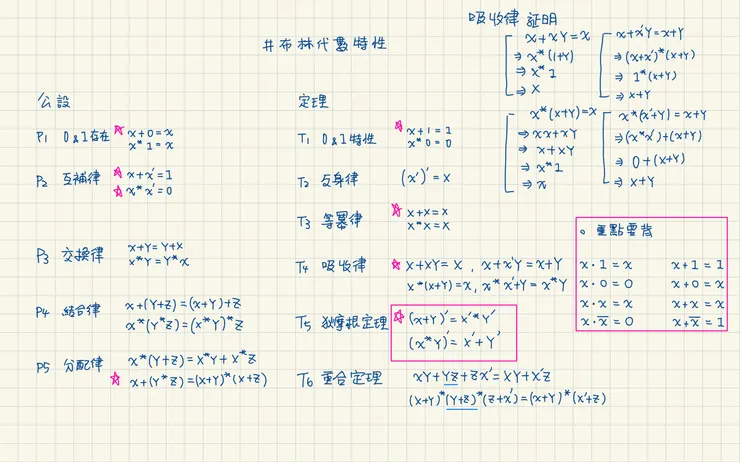 #布林代數特性
公設
P1 0&1存在 ☆ x+0=x
x*1=x
P2 互補律 ☆ x+x'=1
☆ x*x'=0
P3 交換律 x+Y=Y+x
x*Y=Y*x
P4 結合律 x+(Y+Z)=(x+Y)+Z
x*(Y*Z)=(x*Y)*Z
P5 分配律 x*(Y+Z)=x*Y+x*Z
☆ x+(Y*Z)=(x+Y)*(x+Z)
定理
T1 0&1特性 ☆ x+1=1
x*0=0
T2 反身律 (x')'=x
T3 等冪律 ☆ x+x=x
x*x=x
T4 吸收律 ☆ x+xY=x , x+x'Y=x+Y
x*(x+Y)=x, x*x'Y=x*Y
T5 狄摩根定理 ☆ (x+Y)'=x'*Y'
(x*Y)'=x'+Y'
T6 重合定理 xY+YZ+Zx'=xY+x'Z
(x+Y)*(Y+Z)*(Z+x')=(x+Y)*(x'+Z)
吸收律証明
x+xY=x
⇒x*(1+Y)
⇒x*1
⇒x
x+x'Y=x+Y
⇒(x+x')*(x+Y)
⇒1*(x+Y)
⇒x+Y
x*(x+Y)=x
⇒xx+xY
⇒x+xY
⇒x*1
⇒x
x*(x'+Y)=x+Y
⇒(x*x')+(x+Y)
⇒0+(x+Y)
⇒x+Y
。重點要背
x·1=x x+1=1
x·0=0 x+0=x
x·x=x x+x=x
x·x̅=0 x+x̅=1